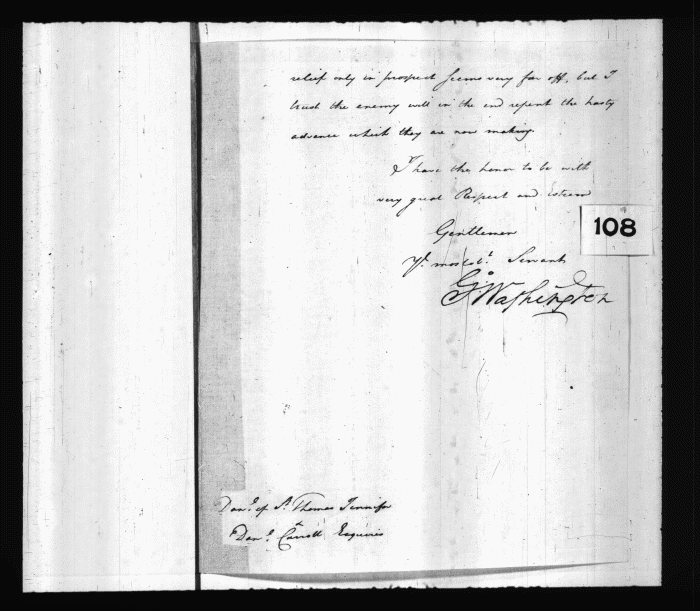 relief only in prospect seems very far off, but I
trust the enemy will in the end repent the hasty
advance which they are now making.
I have the honor to be with
very great Respect and Esteem
Gentlemen
108
Yr. most obt. Servant
Go: Washington
Danl. of St. Thomas Jenifer
Danl. Carroll Esquires